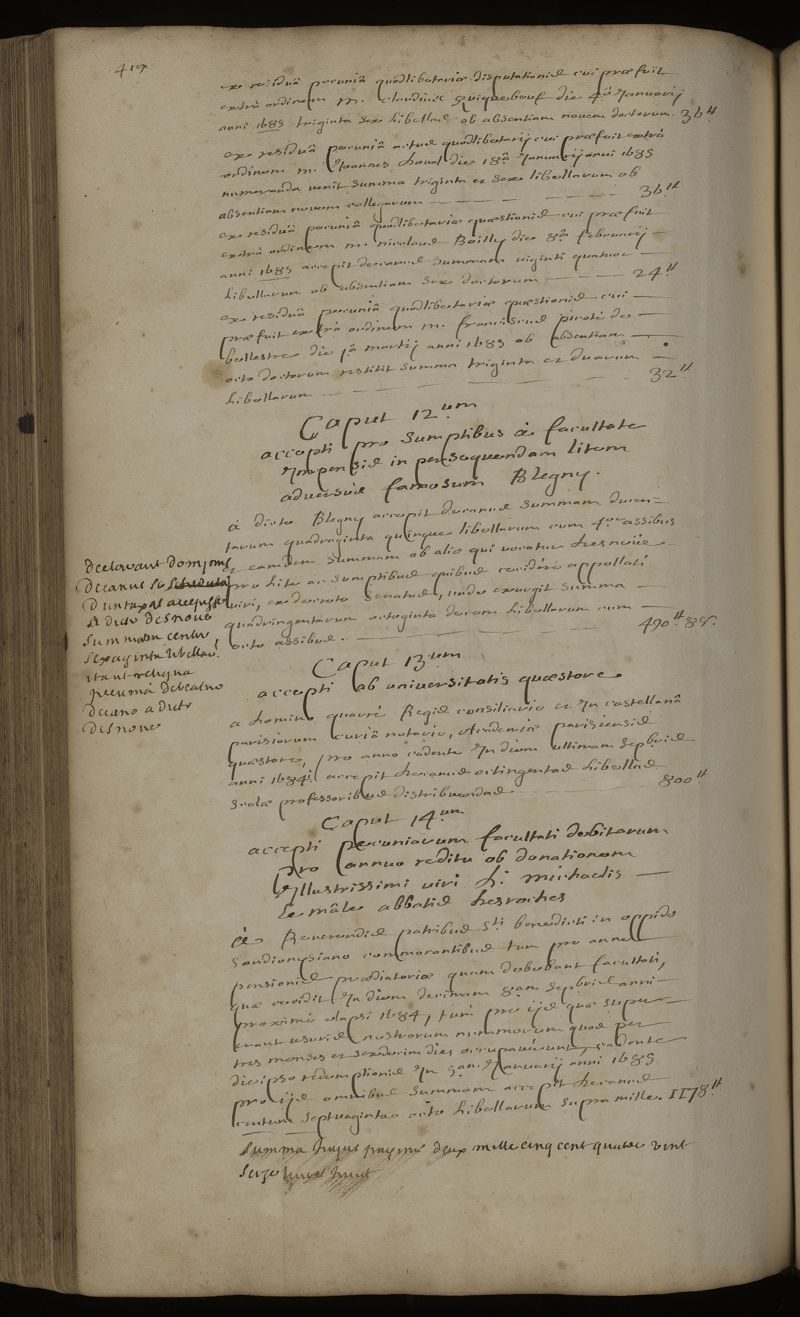 ex residuâ pecuniâ quodlibetariæ disputationis cui præfuit
extrà ordinem M. Claudius Quiquebeuf die 4â Januarij
anni 1685 triginta sex libellas ob absentiam novem doctorum. 36 ₶
ex residuâ pecuniâ actus quodlibetarij cui præfuit extrà
ordinem M. Joannes haval die 18â Januarij anni 1685
numeranda venit summa triginta et sex libellarum ob
absentiam novem collegarum 36 ₶
ex residuâ pecuniâ quodlibetariæ quæstionis cui præfuit
extrà ordinem M. nicolaus Bailly die 8â februarij
anni 1685 accepit decanus summam viginti quatuor
libellarum ob absentiam sex doctorum 24 ₶
ex residuâ pecuniâ quodlibetariæ quæstionis cui
præfuit extrà ordinem M. franciscus picoté de
bellestre die 1â martij anni 1685 ob absentiam
octo doctorum restitit summa triginta et duarum
libellarum 32 ₶
Caput 12um
accepti pro sumptibus à facultate
Jmpensis in persequendam litem
adversus famosum Blegny.
à dicto Blegny accepit decanus summam ducen=
tarum quadraginta quinque libellarum cum 4or assibus
et eamdem summam ab alio qui vocatur desnoüe
pro lite ac sumptibus quibus cecidére appellati
viri, ex decreto senatus, unde exurgit summa
quadringentarum octoginta decem libellarum cum
octo assibus 490 ₶ 8 s.
declaravit dominus
decanus se
duntaxat accepisse
a dicto desnoue
summam centu
sexaginta libellar.
ita ut reliqua
pecunia debeatur
decano a dicto
desnoue
Caput 13um
accepti ab universitatis quæstore
a domino quarré Regis consiliario et Jn castellanâ
parisiorum curiâ notario, Academiæ parisiensis
quæstore, pro anno cadente Jn diem ultimam sepbris
anni 1684i accepit decanus octingentas libellas
scolæ professoribus distribuendas 800 ₶
Caput 14um
accepti pecuniarum facultati debitarum
pro annuo reditu ob donationem
Jllustrissimi viri D. michaelis
Le mâle abbatis desroches
à Reverendis patribus Sti benedicti in oppido
sandionysiano commorantibus tum pro annuâ
pensione prædiatoriæ quam debebant facultati,
quæ cecidit Jn diem decimam 8am sepbris anni
proximè elapsi 1684, tùm pro ijs quæ supe
erant usuris nostrorum nummorum quos per
tres menses et sexdecim dies occupavérunt, cadente
die ipso redemptionis Jn 3am Januarij anni 1685
pro ijs omnibus summam accepit decanus
centum septuaginta octo libellarum supra mille. 1178 ₶
Summa hujus paginæ deux mille cinq cent quatre vint
seize livres huit